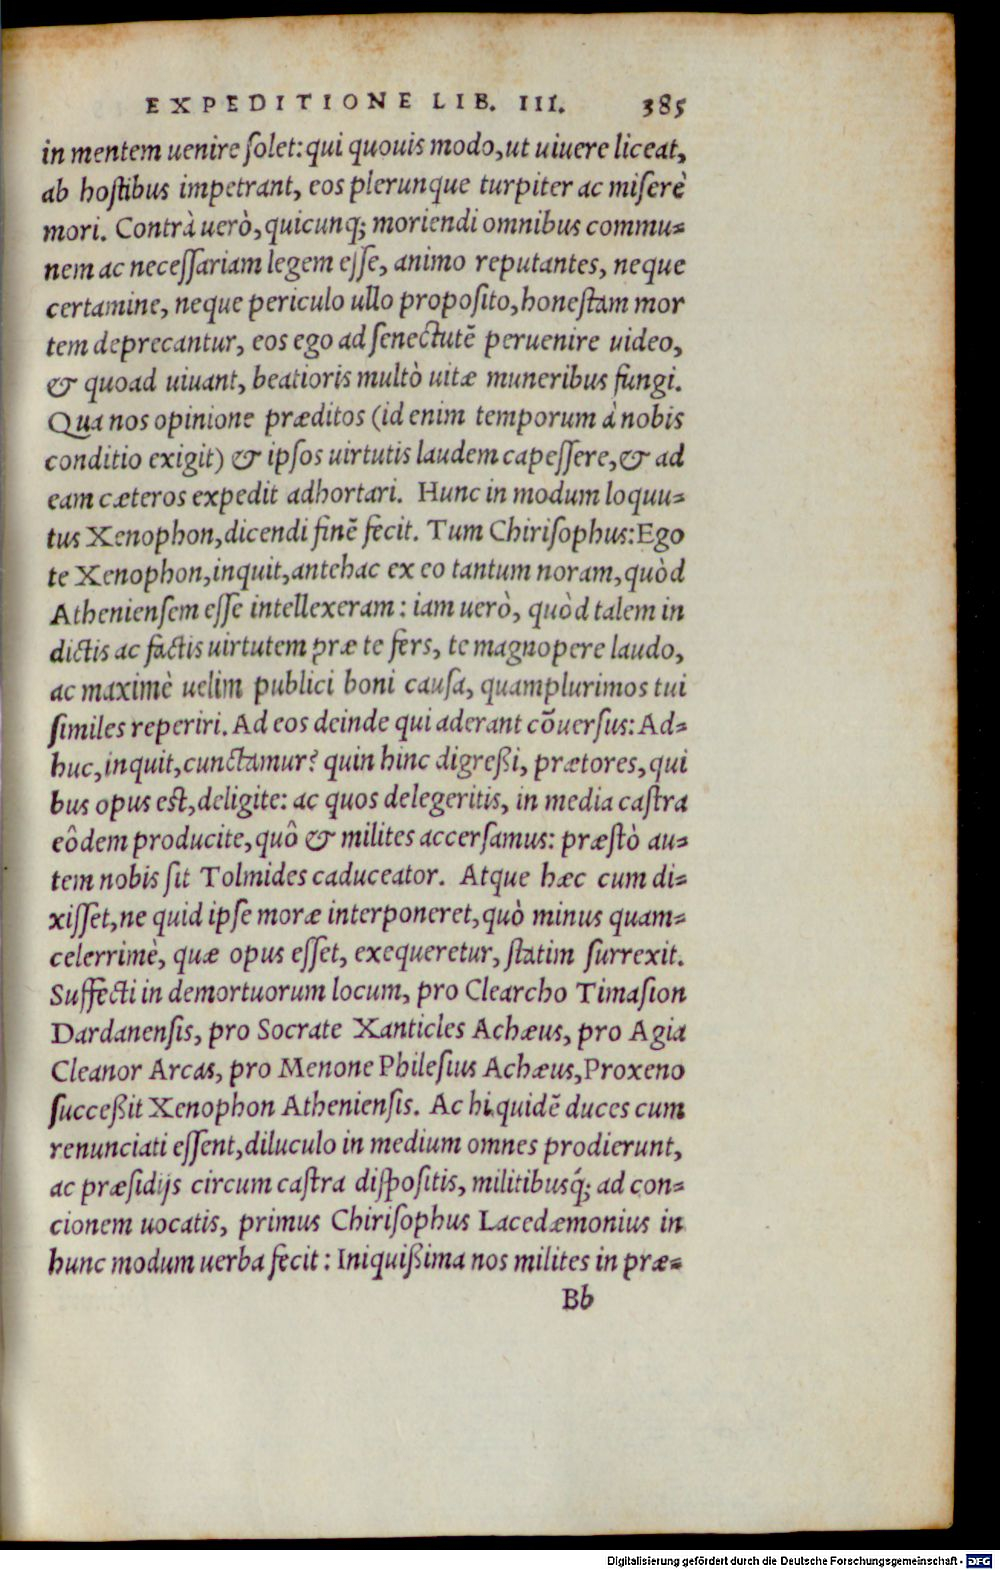 EXPEDITIONE LIB. III. 385
in mentem uenire solet: qui quouis modo, ut uiuere liceat,
ab hostibus impetrant, eos plerunque turpiter ac miserè
mori. Contrà uerò, quicunq; moriendi omnibus commu=
nem ac necessariam legem esse, animo reputantes, neque
certamine, neque periculo ullo proposito, honestam mor
tem deprecantur, eos ego ad senectutẽ peruenire uideo,
& quoad uiuant, beatioris multò uitæ muneribus fungi.
Qua nos opinione præditos (id enim temporum à nobis
conditio exigit) & ipsos uirtutis laudem capessere, & ad
eam cæteros expedit adhortari. Hunc in modum loquu=
tus Xenophon, dicendi finẽ fecit. Tum Chirisophus: Ego
te Xenophon, inquit, antehac ex eo tantum noram, quòd
Atheniensem esse intellexeram: iam uerò, quòd talem in
dictis ac factis uirtutem præ te fers, te magnopere laudo,
ac maximè uelim publici boni causa, quamplurimos tui
similes reperiri. Ad eos deinde qui aderant cõuersus: Ad=
huc, inquit, cunctamur? quin hinc digreßi, prætores, qui
bus opus est, deligite: ac quos delegeritis, in media castra
eôdem producite, quô & milites accersamus: præstò au=
tem nobis sit Tolmides caduceator. Atque hæc cum di=
xisset, ne quid ipse moræ interponeret, quò minus quam=
celerrimè, quæ opus esset, exequeretur, statim surrexit.
Suffecti in demortuorum locum, pro Clearcho Timasion
Dardanensis, pro Socrate Xanticles Achæus, pro Agia
Cleanor Arcas, pro Menone Philesius Achæus, Proxeno
succeßit Xenophon Atheniensis. Ac hi quidẽ duces cum
renunciati essent, diluculo in medium omnes prodierunt,
ac præsidijs circum castra dispositis, militibusq́; ad con=
cionem uocatis, primus Chirisophus Lacedæmonius in
hunc modum uerba fecit: Iniquißima nos milites in præ=
Bb
Digitalisierung gefördert durch die Deutsche Forschungsgemeinschaft - DFG